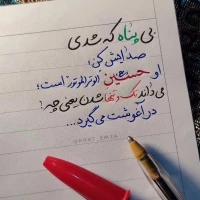 بی پناه که شدی
صدایش کن؛
او حسین الوتر الموتور است؛
می‌داند تک و تنها شدن یعنی چه!
در آغوشت می‌گیرد...